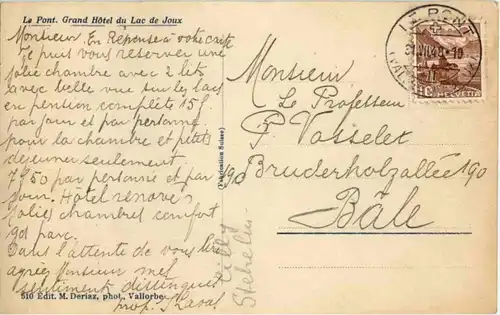 Le Pont. Grand Hôtel du Lac de Joux
Monsieur. En Réponse à votre carte
Je puis vous reserver une
jolie chambre avec 2 lits
avec belle vue sur les lacs
en pension complete 15f.
par jour et par personne.
pour la chambre et petit
dejeuner seulement.
7f50 par personne et par
jour. Hôtel renové
jolies chambres confort
gd parc.
Dans l'attente de vous lire
agréez Monsieur mes
sentiments distingués
prop.
510 Edit. M. Deriaz, phot., Vallorbe.
(Fabrication Suisse)
LE PONT
HELVETIA
10
Monsieur
Le Professeur
P Vosselet
190 Bruderholzallée 190
Bâle
Stehelin